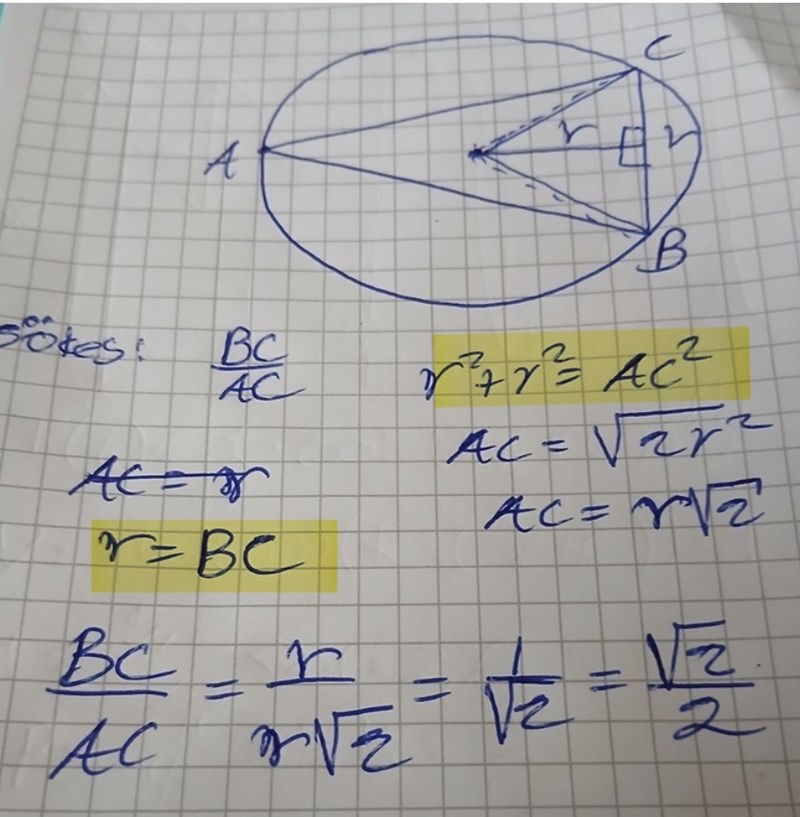 C
A
r
r
B
sökes: BC/AC
r²+r²= AC²
AC = √2r²
AC = r
AC = r√2
r=BC
BC/AC = r/r√2 = 1/√2 = √2/2